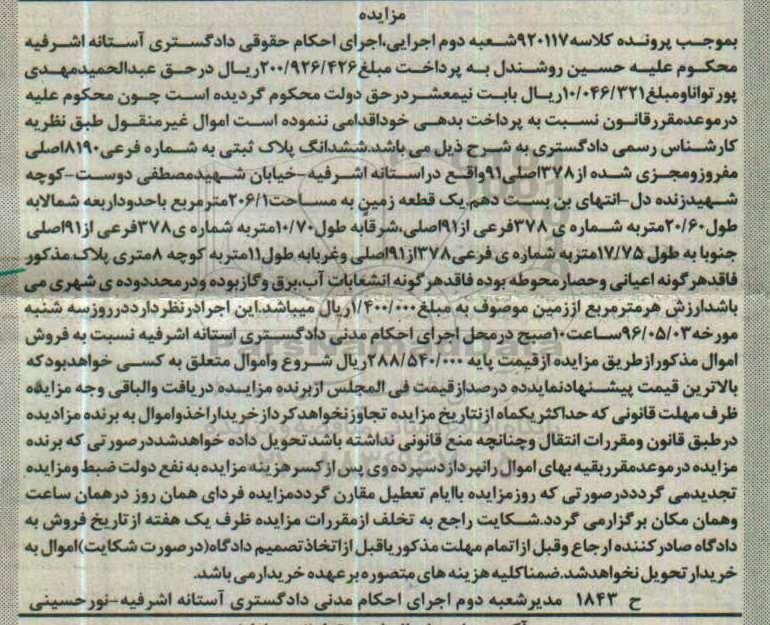 مزایده
بموجب پرونده کلاسه۹۲۰۱۱۷شعبه دوم اجرایی،اجرای احکام حقوقی دادگستری آستانه اشرفیه
محکوم علیه حسین روشندل به پرداخت مبلغ۲۰۰/۹۲۶/۴۲۶ریال درحق عبدالحمیدمهدی
پورتواناومبلغ۱۰/۰۴۶/۳۲۱ریال بابت نیمعشردرحق دولت محکوم گردیده است چون محکوم علیه
درموعدمقررقانون نسبت به پرداخت بدهی خوداقدامی ننموده است اموال غیرمنقول طبق نظریه
کارشناس رسمی دادگستری به شرح ذیل می باشد:ششدانگ پلاک ثبتی به شماره فرعی۸۱۹۰اصلی
مفروزومجزی شده از۳۷۸اصلی۹۱واقع دراستانه اشرفیه-خیابان شهیدمصطفی دوست-کوچه
شهیدزنده دل-انتهای بن بست دهم.یک قطعه زمین به مساحت۲۰۶/۱مترمربع باحدوداربعه شمالابه
طول۲۰/۶۰متربه شماره ی ۳۷۸فرعی از۹۱اصلی،شرقابه طول۱۰/۷۰متربه شماره ی۳۷۸فرعی از۹۱اصلی
جنوبا به طول ۱۷/۷۵متربه شماره ی فرعی۳۷۸از۹۱اصلی وغربابه طول۱۱متربه کوچه ۸متری پلاک مذکور
فاقدهرگونه اعیانی وحصارمحوطه بوده فاقدهرگونه انشعابات آب،برق وگازبوده ودرمحددوده ی شهری می
باشدارزش هرمترمربع اززمین موصوف به مبلغ۱/۴۰۰/۰۰۰ریال میباشد.این اجرادرنظرداردرروزسه شنبه
مورخه۹۶/۰۵/۰۳ساعت۱۰صبح درمحل اجرای احکام مدنی دادگستری استانه اشرفیه نسبت به فروش
اموال مذکورازطریق مزایده ازقیمت پایه ۲۸۸/۵۴۰/۰۰۰ریال شروع واموال متعلق به کسی خواهدبودکه
بالاترین قیمت پیشنهادنمایدده درصدازقیمت فی المجلس ازبرنده مزایده دریافت والباقی وجه مزایده
ظرف مهلت قانونی که حداکثریکماه ازنتاریخ مزایده تجاوزنخواهدکردازخریداراخذواموال به برنده مزادیده
درطبق قانون ومقررات انتقال وچنانچه منع قانونی نداشته باشدتحویل داده خواهدشددرصورتی که برنده
مزایده درموعدمقرربقیه بهای اموال رانپردازدسپرده وی پس ازکسرهزینه مزایده به نفع دولت ضبط ومزایده
تجدیدمی گردددرصورتی که روزمزایده باایام تعطیل مقارن گرددمزایده فردای همان روز درهمان ساعت
وهمان مکان برگزارمی گردد.شکایت راجع به تخلف ازمقررات مزایده ظرف یک هفته ازتاریخ فروش به
دادگاه صادرکننده ارجاع وقبل ازاتمام مهلت مذکوریاقبل ازاتخاذتصمیم دادگاه(درصورت شکایت)اموال به
خریدارتحویل نخواهدشد.ضمناکلیه هزینه های متصوره برعهده خریدارمی باشد.
ح ۱۸۴۳ مدیرشعبه دوم اجرای احکام مدنی دادگستری آستانه اشرفیه-نورحسینی